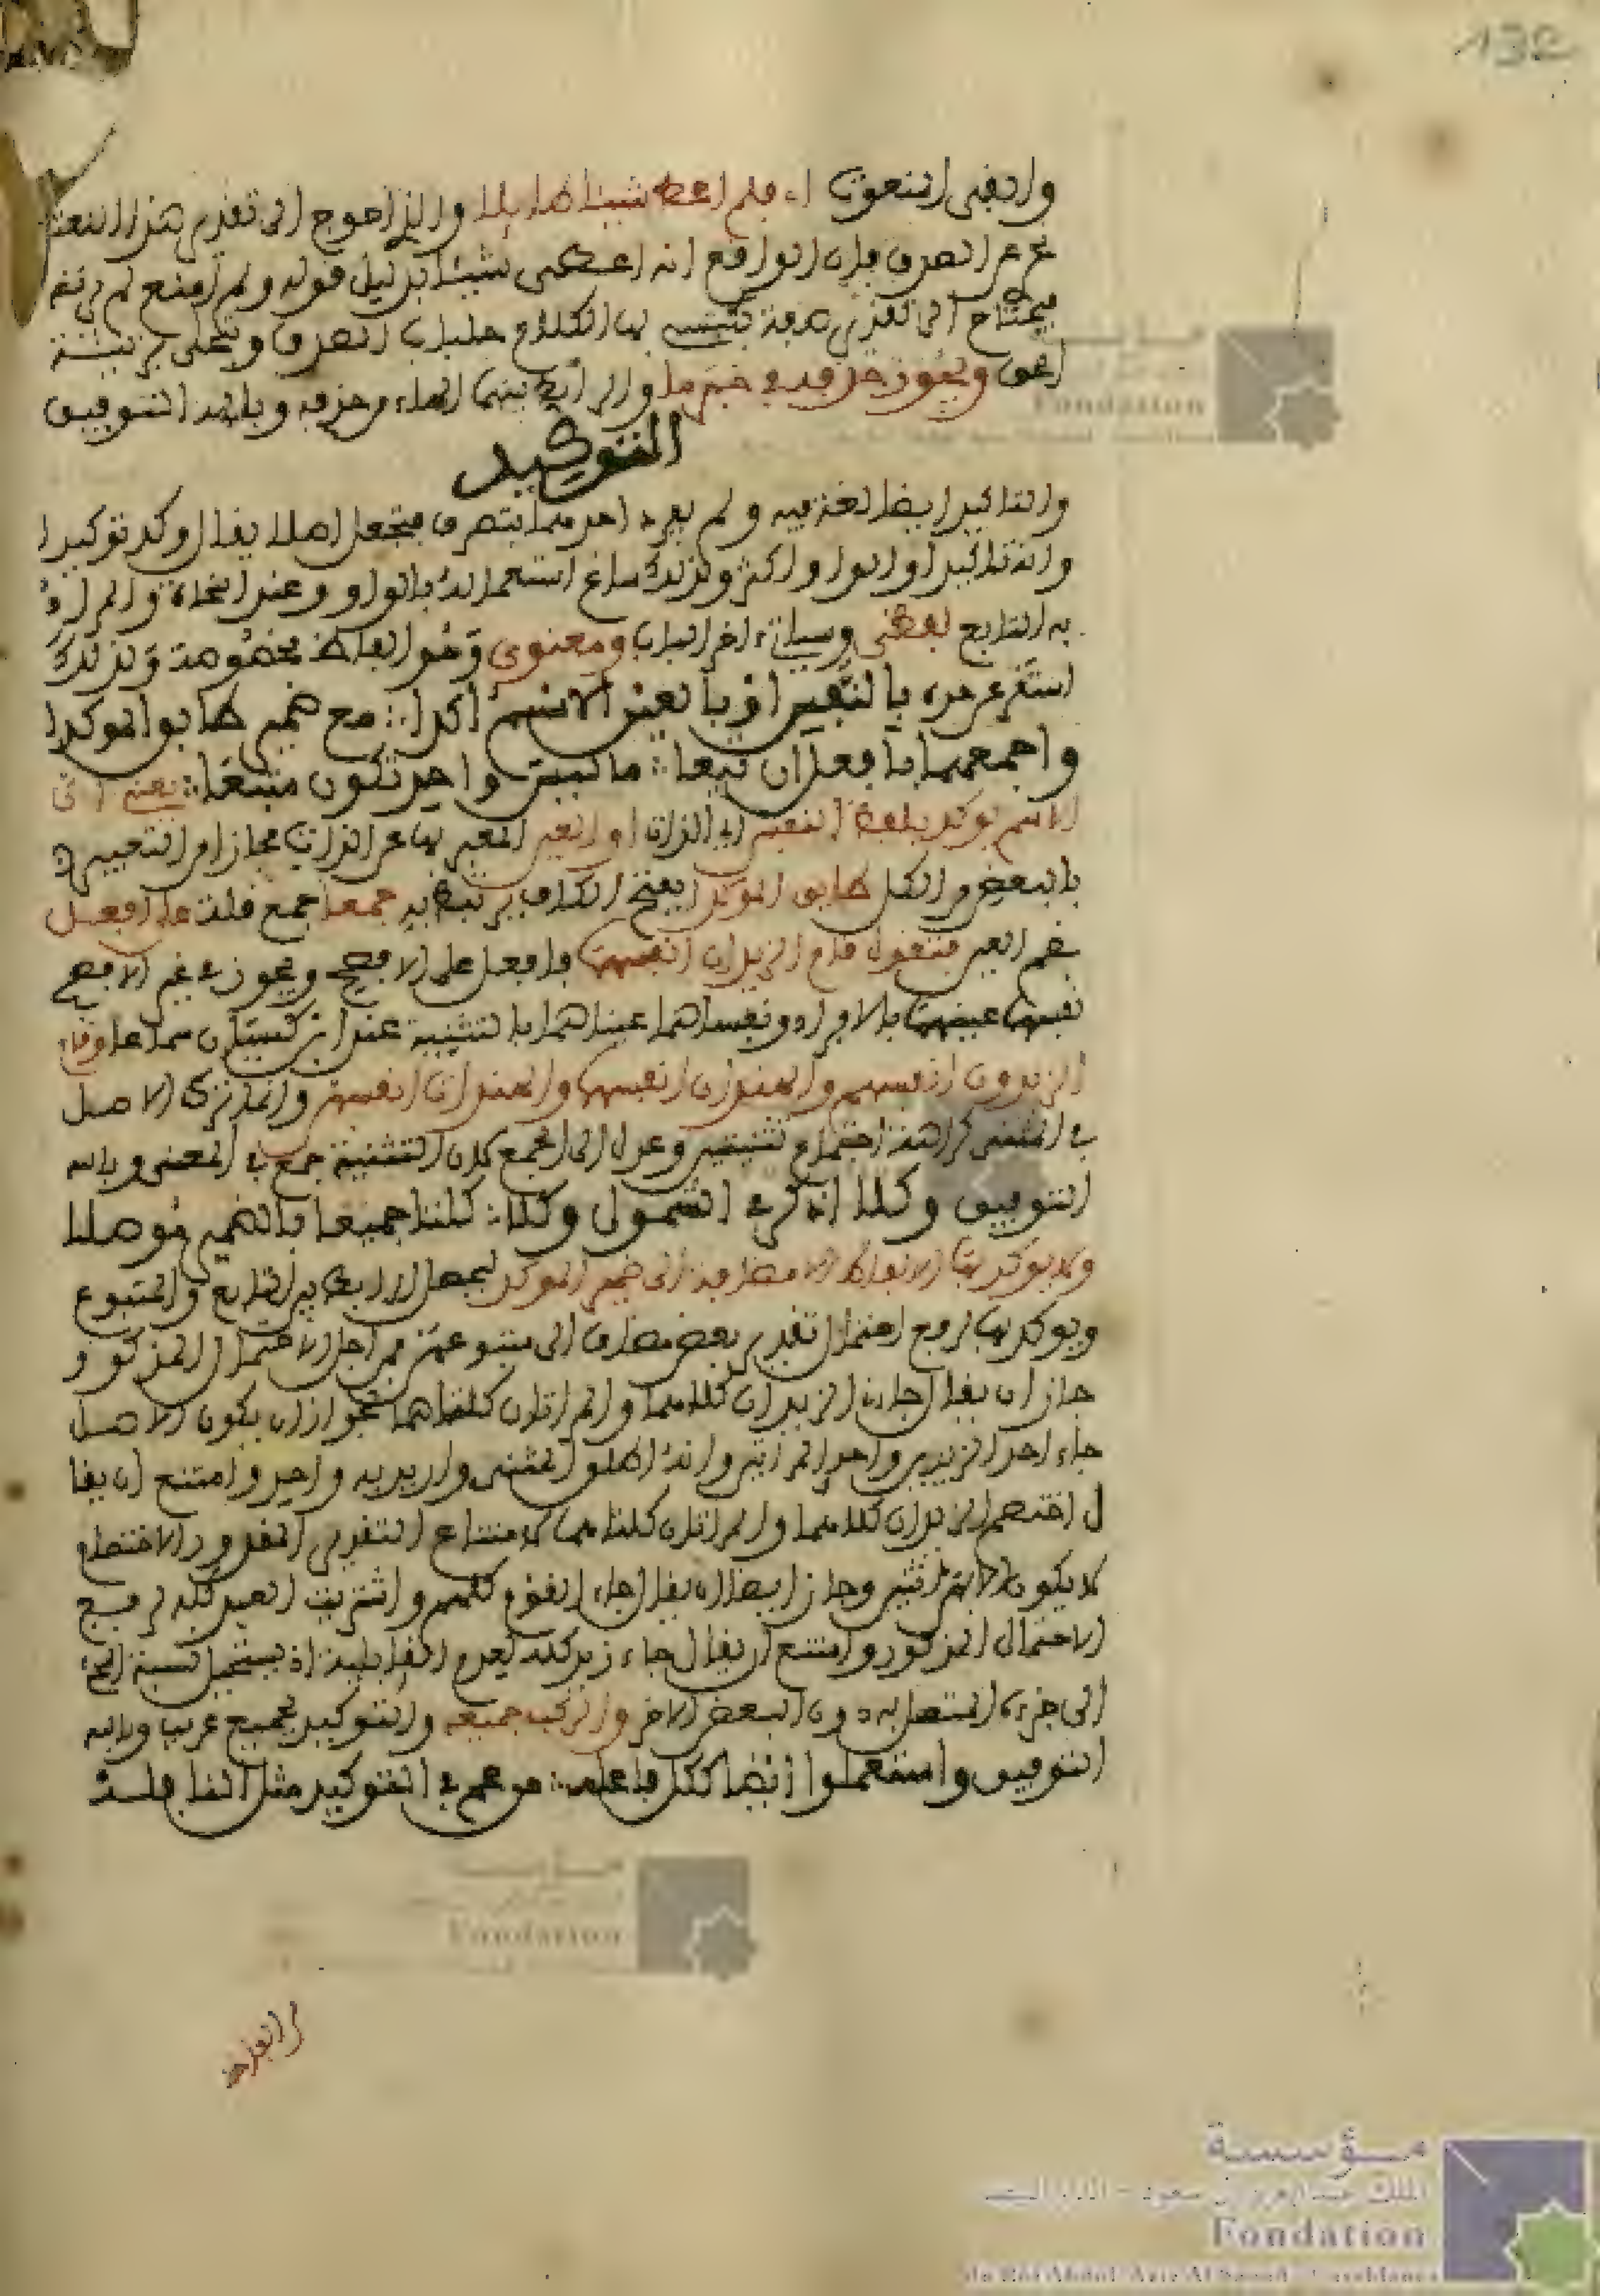 132
وابقى المنعوت اء فلم اعط شيئا طايلا والذي احوج الى تقدير هذا النعت
تحرى الصدق فإن الواقع انه اعطى شيئا بدليل قوله ولم امنع ثم
فيحتاج الى تقدير صفة يكتسي بها الكلام جلباب الصدق ويتحلى بزينة
ويجوز حذفه خبرها والرابط بينهما الهاء وحذفه وبالله التوفيق
التوكيد
والتاكيد ايضا لغة فيه ولم يعر احدهما بتصرف فيجعل اصلا يقال وكد توكيدا
واكد تاكيدا والواو اكثر ولذلك ساغ استعماله بالواو وعند النحاة والمراد
به التابع لفظي وسياتي ءاخر الباب ومعنوي وهو الفاظ مخصوصة ولذلك
استغنى عن حده بالنفس او بالعين الاسم اكدا ∴ مع ضمير طابق الموكدا
واجمعهما بافعل ان تبعا ∴ ما ليس واحدا تكن متبعا ∴ يعني ان
الاسم يوكد بلفظ النفس اي الذات او العين المعبر بها عن الذات مجازا من التعبير
بالبعض عن الكل طابق الموكد بفتح الكاف جمعا جمع قلة على افعل
بضم العين فتقول قام الزيدان انفسهما فافعل على الافصح ويجوز في غير الافصح
نفسهما عينهما بالافراد ونفساهما عيناهما بالتثنية عند ابن كيسان سماعا وقام
الزيدون انفسهم والهندان انفسهما والهندات انفسهن وانما ترك الاصل
في المثنى كراهة اجتماع تثنيتين وعدل الى الجمع لان التثنية جمع في المعنى وبالله
التوفيق وكلا اذكر في الشمول وكلا ∴ كلتا جميعا بالضمير موصلا
ولا يوكد بهذه الالفاظ الا مضافة الى ضمير الموكد ليحصل الربط بين التابع والمتبوع
ويوكد بها لرفع احتمال تقدير بعض مضاف الى متبوعهن فمن اجل الاحتمال المذكور
جاز ان يقال جاء الزيدان كلاهما والمراتان كلتاهما لجواز ان يكون الاصل
جاء احد الزيدين واحدى المراتين وانه اطلق المثنى واريد به واحد وامتنع ان يقا
ل اختصم الزيدان كلاهما والمراتان كلتاهما لامتناع التقدير المذكور اذ الاختصام
لا يكون الا بين اثنين وجاز ايضا ان يقال جاء القوم كلهم واشتريت العبد كله لرفع
الاحتمال المذكور وامتنع ان يقال جاء زيد كله لعدم الفايدة اذ يستحيل نسبة المجيء
الى جزئه المتصل به دون البعض الاخر والركب جميعه والتوكيد بجميع غريب وبالله
التوفيق واستعملوا ايضا ككل فاعله ∴ من عم في التوكيد مثل النافلة
مؤسسة
Fondation
مؤسسة
Fondation
مؤسسة
الملك عبد العزيز آل سعود - الدار البيضاء
Fondation
du Roi Abdul-Aziz Al Saoud - Casablanca